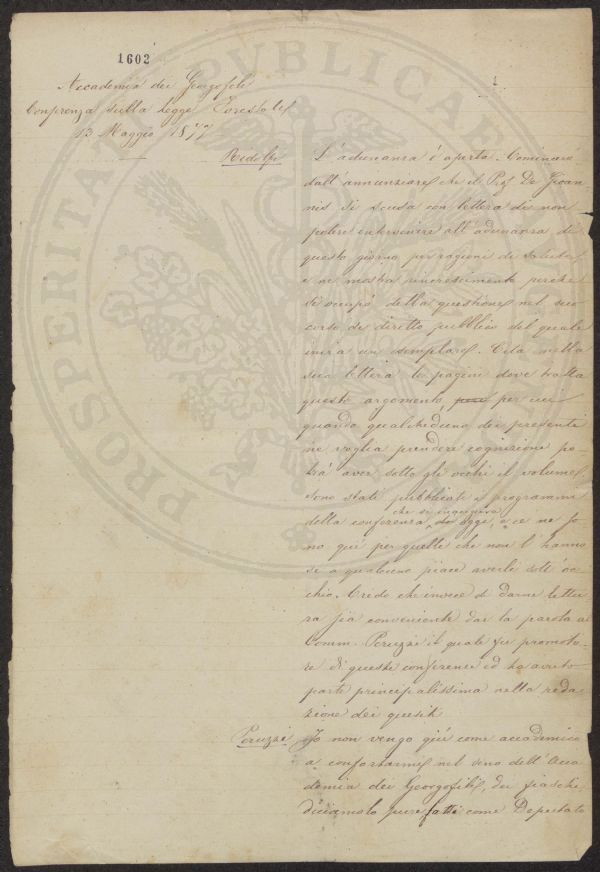 1602
1
Accademia dei Georgofili
Conferenza sulla Legge Forestale
13 Maggio 1877
Ridolfi
L'adunanza è aperta. Comincerò
dall'annunziare che il Prof. De Gioan-
nis si scusa con lettera di non
potere intervenire all'adunanza di
questo giorno per ragioni di salute
e ne mostra rincrescimento perchè
si occupò della questione nel suo
corso di diritto pubblico del quale
invia un esemplare. Cita nella
sua lettera le pagine dove tratta
questo argomento per cui
quando qualcheduno dei presenti
ne voglia prendere cognizione po-
trà aver sotto gli occhi il volume
Sono stati pubblicati i programmi
che si inaugura
della conferenza oggi, e ce ne so-
no quì per quelli che non l'hanno
se a qualcuno piace averli sott'oc-
chio. Credo che invece di darne lettu
ra sia conveniente dar la parola al
Comm. Peruzzi il quale fu promoto-
re di queste conferenze ed ha avuto
parte principalissima nella reda-
zione dei quesiti
Peruzzi
Io non vengo quì come accademico
a confortarmi nel seno dell'Acca
demia dei Georgofili, dei fiaschi
diciamolo pure fatti come Deputato
PROSPERITATI PUBLICAE